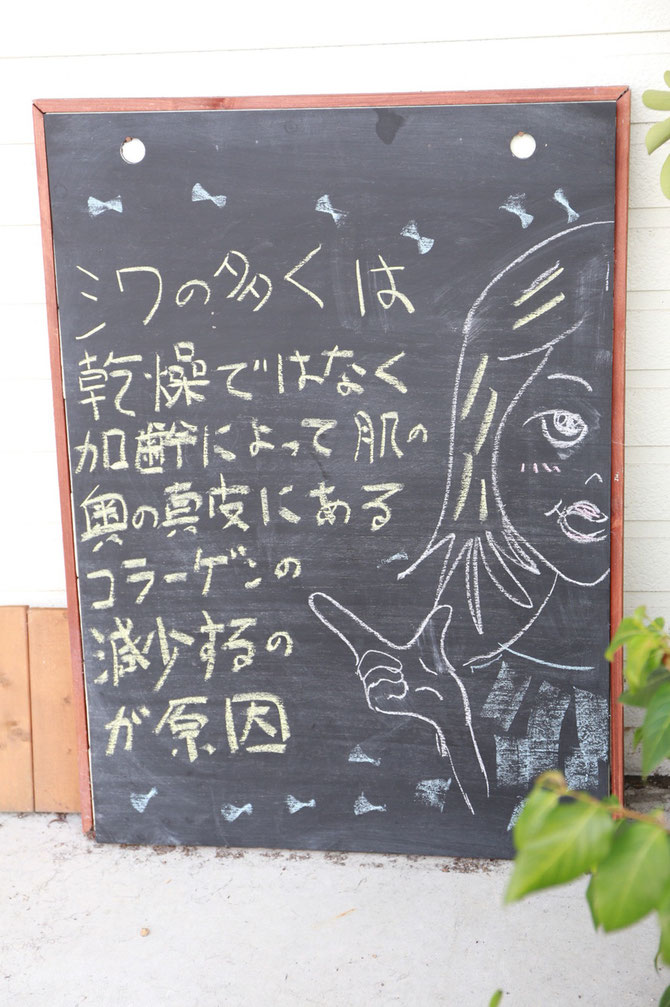 シワの多くは
乾燥ではなく
加齢によって肌の
奥の真皮にある
コラーゲンの
減少するの
が原因